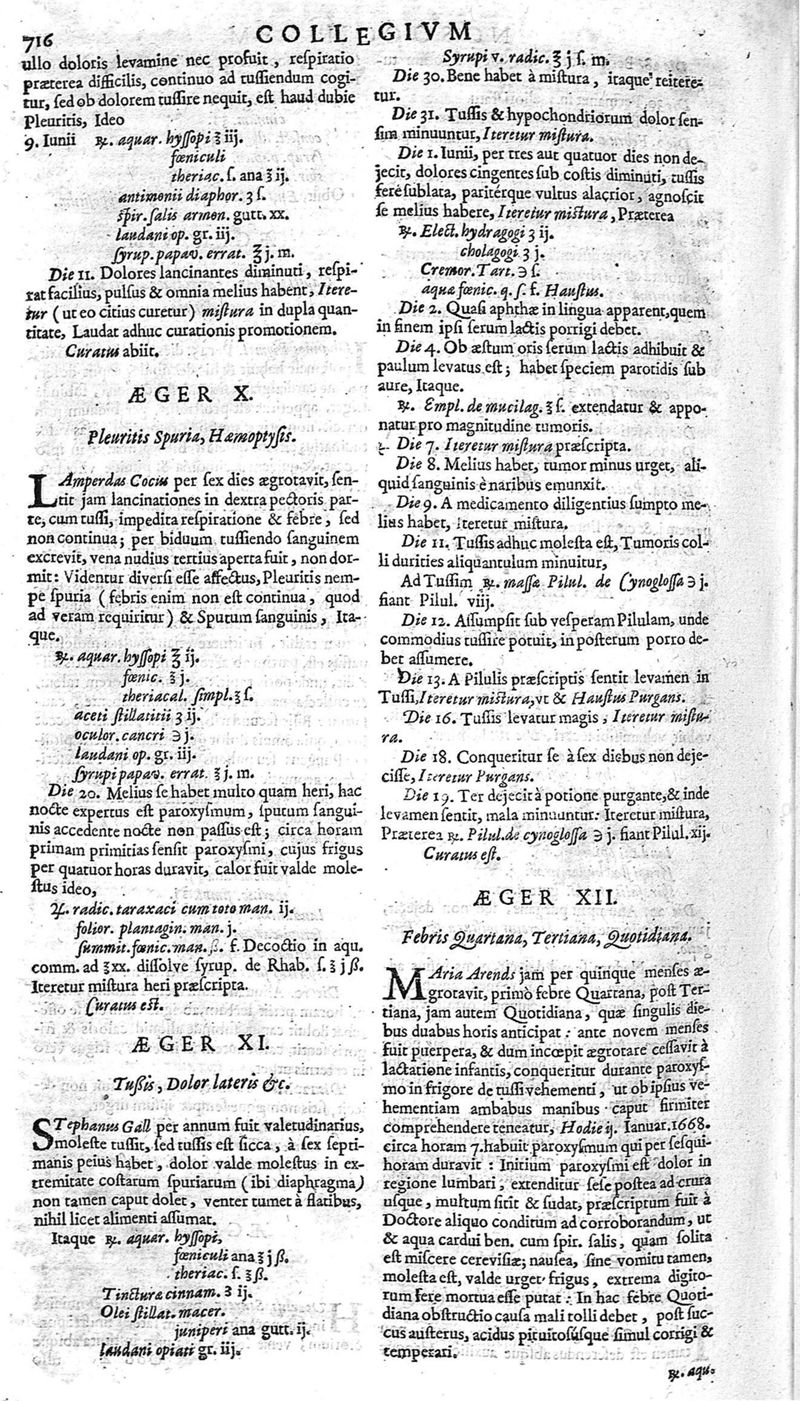 716
COLLEGIVM
ullo doloris levamine nec profuit, reſpiratio
præterea difficilis, continuo ad tuſſiendum cogi-
tur, ſed ob dolorem tuſſire nequit, eſt haud dubie
Pleuritis, Ideo
9. Iunii ℞. aquar. hyſſopi ℥ iij.
fœniculi
theriac. ſ. ana ℥ ij.
antimonii diaphor. ʒ ſ.
ſpir. ſalis armon. gutt. xx.
laudani op. gr. iij.
ſyrup. papav. errat. ℥ j. m.
Die 11. Dolores lancinantes diminuti, reſpi-
rat facilius, pulſus & omnia melius habent, Itere-
tur (ut eo citius curetur) miſtura in dupla quan-
titate, Laudat adhuc curationis promotionem.
Curatus abiit.
ÆGER X.
Pleuritis Spuria, Hæmoptyſis.
LAmperdas Cocius per ſex dies ægrotavit, ſen-
tit jam lancinationes in dextra pectoris par-
te, cum tuſſi, impedita reſpiratione & febre, ſed
non continua; per biduum tuſſiendo ſanguinem
excrevit, vena nudius tertius aperta fuit, non dor-
mit: Videntur diverſi eſſe affectus, Pleuritis nem-
pe ſpuria (febris enim non eſt continua, quod
ad veram requiritur) & Sputum ſanguinis, Ita-
que.
℞. aquar. hyſſopi ℥ ij.
fœnic. ℥ j.
theriacal. ſimpl. ℥ ſ.
aceti ſtillatitii ʒ ij.
oculor. cancri ℈ j.
laudani op. gr. iij.
ſyrupi papav. errat. ℥ j. m.
Die 20. Melius ſe habet multo quam heri, hac
nocte expertus eſt paroxyſmum, ſputum ſangui-
nis accedente nocte non paſſus eſt; circa horam
primam primitias ſenſit paroxyſmi, cujus frigus
per quatuor horas duravit, calor fuit valde mole-
ſtus ideo,
℞. radic. taraxaci cum toto man. ij.
folior. plantagin. man. j.
ſummit. fœnic. man. ß. f. Decoctio in aqu.
comm. ad ℥xx. diſſolve ſyrup. de Rhab. ſ. ℥ j ß.
Iteretur miſtura heri præſcripta.
Curatus eſt.
ÆGER XI.
Tußis, Dolor lateris &c.
STephanus Gall per annum fuit valetudinarius,
moleſte tuſſit, ſed tuſſis eſt ſicca, à ſex ſepti-
manis peius habet, dolor valde moleſtus in ex-
tremitate coſtarum ſpuriarum (ibi diaphragma)
non tamen caput dolet, venter tumet à flatibus,
nihil licet alimenti aſſumat.
Itaque ℞. aquar. hyſſopi,
fœniculi ana ℥ j ß.
theriac. ſ. ℥ ß.
Tinctura cinnam. ʒ ij.
Olei ſtillat. macer.
juniperi ana gutt. ij.
laudani opiati gr. iij.
Syrupi v. radic. ℥ j ſ. m.
Die 30. Bene habet à miſtura, itaque reitere-
tur.
Die 31. Tuſſis & hypochondriorum dolor ſen-
ſim minuuntur, Iteretur miſtura.
Die 1. Iunii, per tres aut quatuor dies non de-
jecit, dolores cingentes ſub coſtis diminuti, tuſſis
fere ſublata, paritérque vultus alacrior, agnoſcit
ſe melius habere, Iteretur miſtura, Præterea
℞. Elect. hydragogi ʒ ij.
cholagogi ʒ j.
Cremor. Tart. ℈ ſ.
aquæ fœnic. q. ſ. f. Hauſtus.
Die 2. Quaſi aphthæ in lingua apparent, quem
in finem ipſi ſerum lactis porrigi debet.
Die 4. Ob æſtum oris ſerum lactis adhibuit &
paulum levatus eſt; habet ſpeciem parotidis ſub
aure, Itaque.
℞. Empl. de mucilag. ℥ ſ. extendatur & appo-
natur pro magnitudine tumoris.
Die 7. Iteretur miſtura præſcripta.
Die 8. Melius habet, tumor minus urget, ali-
quid ſanguinis è naribus emunxit.
Die 9. A medicamento diligentius ſumpto me-
lius habet, iteretur miſtura.
Die 11. Tuſſis adhuc moleſta eſt, Tumoris col-
li durities aliquantulum minuitur,
Ad Tuſſim ℞. maſſa Pilul. de Cynogloſſa ℈ j.
fiant Pilul. viij.
Die 12. Aſſumpſit ſub veſperam Pilulam, unde
commodius tuſſire potuit, in poſterum porro de-
bet aſſumere.
Die 13. A Pilulis præſcriptis ſentit levamen in
Tuſſi, Iteretur miſtura, vt & Hauſtus Purgans.
Die 16. Tuſſis levatur magis, Iteretur miſtu-
ra.
Die 18. Conqueritur ſe à ſex diebus non deje-
ciſſe, Iteretur Purgans.
Die 19. Ter dejecit à potione purgante, & inde
levamen ſentit, mala minuuntur: Iteretur miſtura,
Præterea ℞. Pilul. de cynogloſſa ℈ j. fiant Pilul. xij.
Curatus eſt.
ÆGER XII.
Febris Quartana, Tertiana, Quotidiana.
MAria Arends jam per quinque menſes æ-
grotavit, primò febre Quartana, poſt Ter-
tiana, jam autem Quotidiana, quæ ſingulis die-
bus duabus horis anticipat: ante novem menſes
fuit puerpera, & dum incœpit ægrotare ceſſavit à
lactatione infantis, conqueritur durante paroxyſ-
mo in frigore de tuſſi vehementi, ut ob ipſius ve-
hementiam ambabus manibus caput firmiter
comprehendere teneatur, Hodie ij. Ianuar. 1668.
circa horam 7. habuit paroxyſmum qui per ſeſqui-
horam duravit: Initium paroxyſmi eſt dolor in
regione lumbari, extenditur ſeſe poſtea ad crura
uſque, multum ſitit & ſudat, præſcriptum fuit à
Doctore aliquo conditum ad corroborandum, ut
& aqua cardui ben. cum ſpir. ſalis, quam ſolita
eſt miſcere cereviſiæ; nauſea, ſine vomitu tamen,
moleſta eſt, valde urget frigus, extrema digito-
rum fere mortua eſſe putat: In hac febre Quoti-
diana obſtructio cauſa mali tolli debet, poſt ſuc-
cus auſterus, acidus pituitoſúſque ſimul corrigi &
temperari.
℞. aqu.